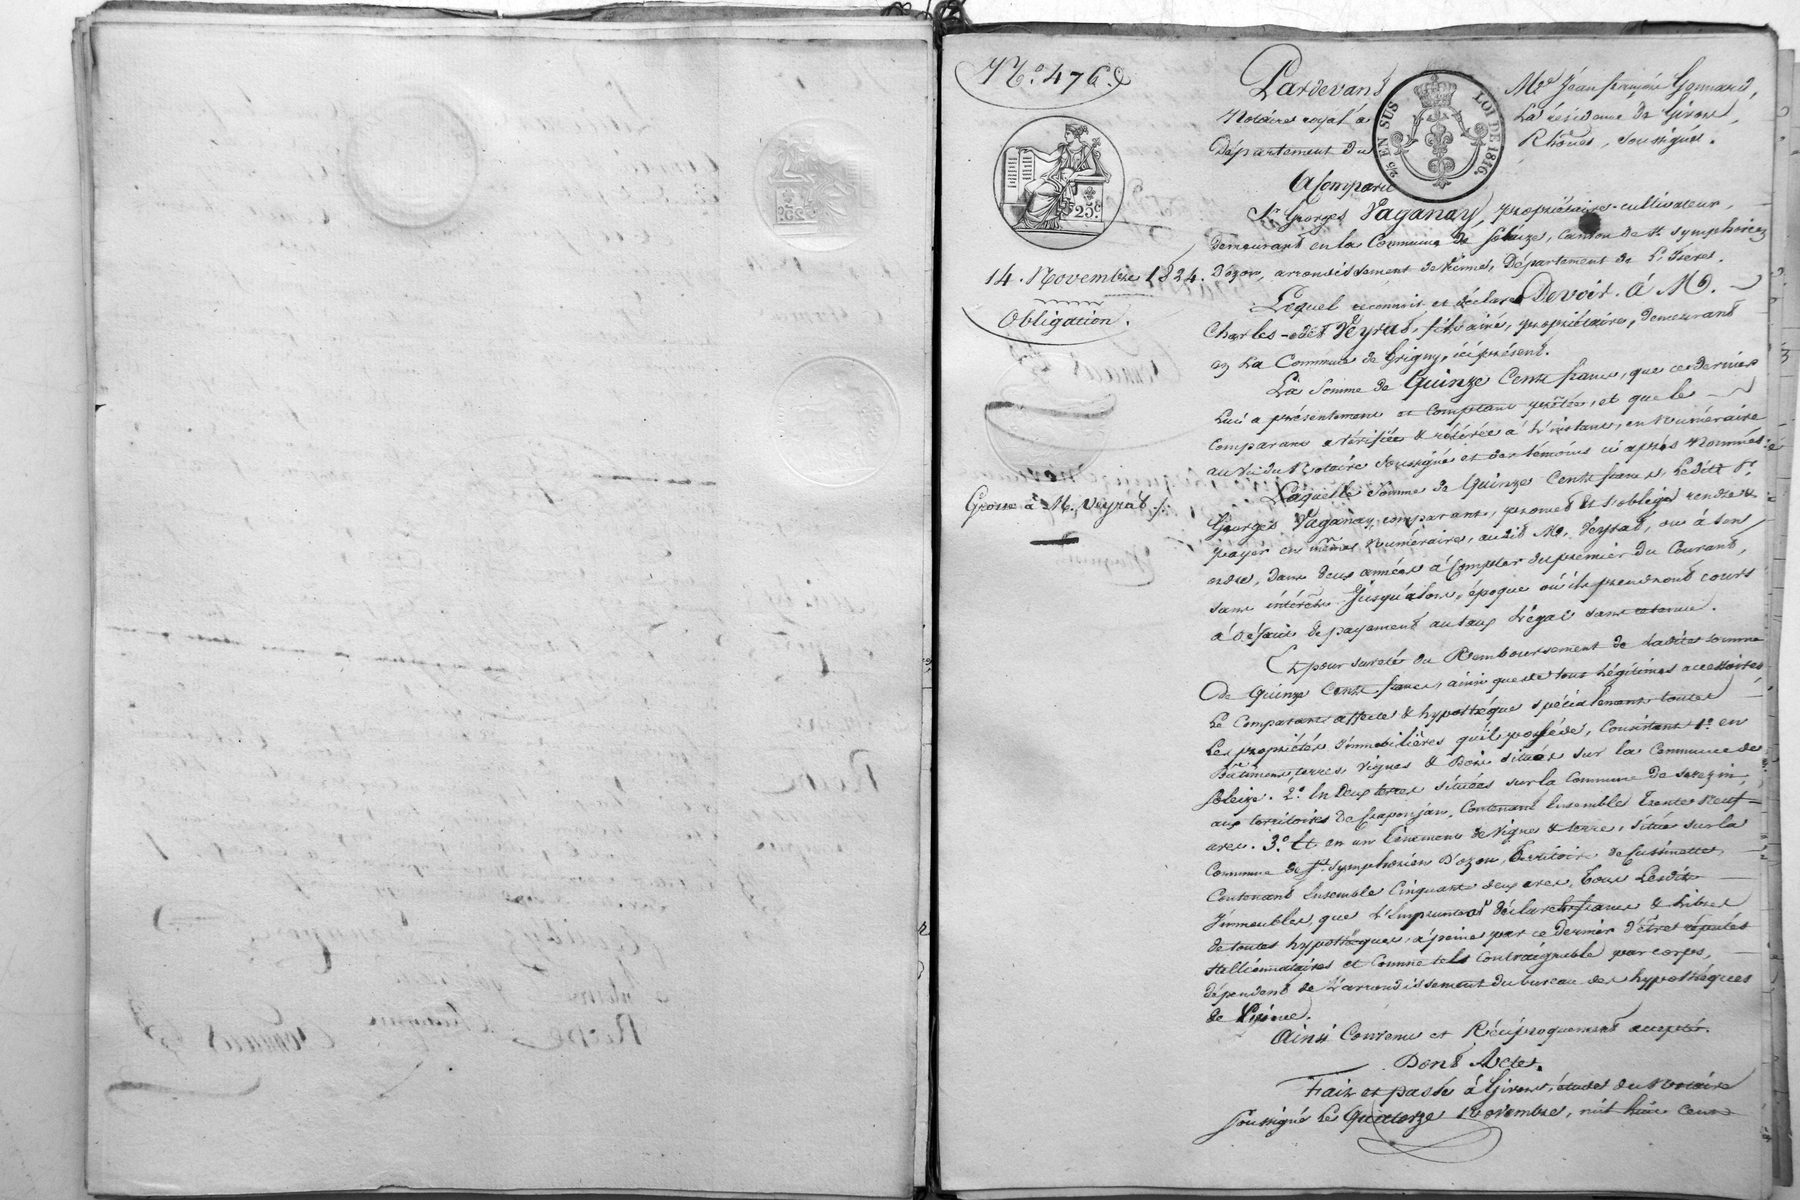 No. 476.
25.c
14. Novembre 1824.
Obligation.
Grosse à M. Veyrat./.
2/5 EN SUS
LOI DE 1816.
Pardevant Me. Jean françois Gonnard,
Notaire royal à La résidence de Givors,
Département du Rhône, soussigné.
A Comparu
Sr. Georges Vaganay, propriétaire-cultivateur,
demeurant en la Commune de Solaize, canton de St. symphorien
D'ozon, arrondissement de Vienne, Département de L'Isère.
Lequel reconnait et déclare Devoir à M.
Charles Veyrat, fils ainé, propriétaire, demeurant
en La Commune de Grigny, ici présent.
La Somme de Quinze Cents francs, que ce dernier
Lui a présentement et comptant prêtée, et que le
Comparant a vérifiée & retirée à L'instant, en Numéraire
au vû du Notaire soussigné et des témoins ci après Nommés.
Laquelle somme de Quinze Cents francs, Ledit Sr.
Georges Vaganay, comparant, promet et s'oblige rendre &
payer en même Numéraire, audit M. Veyrat, ou à son
ordre, dans deux années à Compter du premier du Courant,
sans intérêts Jusqu'alors, époque où ils prendront cours
à défaut de payement au taux Légal sans retenue.
Et pour sureté du Remboursement de Ladite somme
de Quinze Cents francs, ainsi que de tous Légitimes accessoires
Le Comparant affecte & hypothèque spécialement toutes
Les propriétés Immobilières qu'il possède, Consistant 1o. en
Bâtiment, terres, Vignes & Bois situés sur la Commune de
Soleize. 2o. En Deux terres situées sur la Commune de Serezin,
aux territoires de Craponjan, Contenant Ensemble Trente Neuf
ares. 3o. Et en un Tènement de Vignes & terre, situé sur la
Commune de St. Symphorien D'ozon, Territoire de
Contenant Ensemble Cinquante deux ares, Tous Lesdits
Immeubles, que L'Emprunteur déclare francs & Libres
de toutes hypothèques, à peine par ce dernier d'être réputés
stellionataires et Comme tels Contraignable par corps,
dépendent de L'arrondissement du bureau des hypothèques
de Vienne.
Ainsi Convenu et Réciproquement accepté.
Dont Acte.
Fait et passé à Givors, étude du Notaire
Soussigné Le Quatorze Novembre, mil huit cent